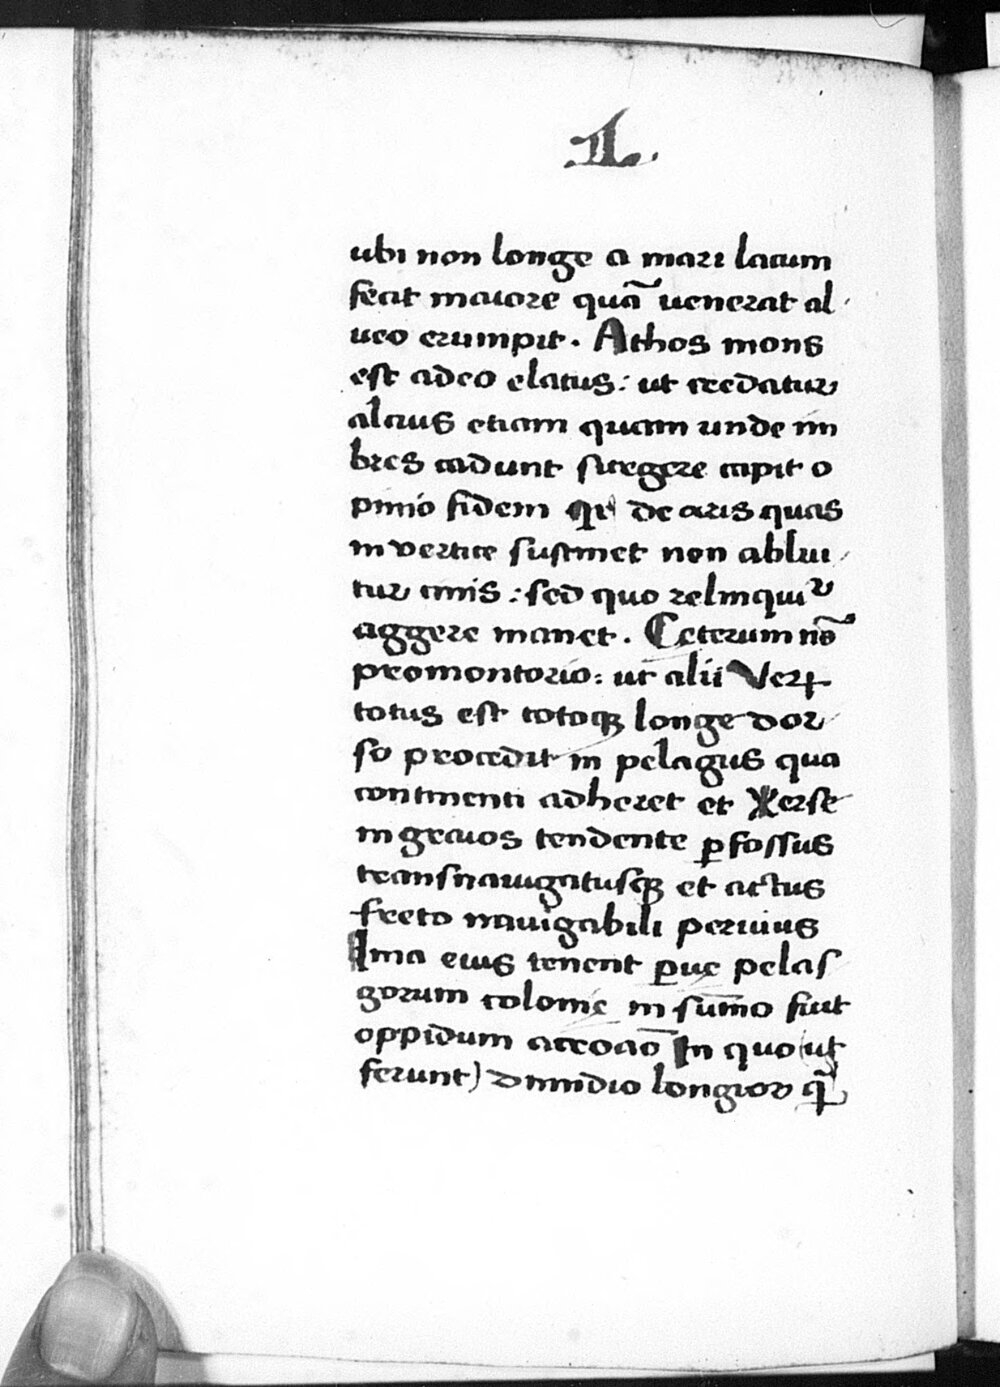 1.
ubi non longe a mari lacum
fecit maiore quã uenerat al
ueo erumpit. Athos mons
est adeo elatus: ut credatur
alcius etiam quam unde im
bres cadunt sitegere capit o
pinio fidem qꝛ de aris quas
in vertice sustinet non ablui
tur cinis: sed quo relinquir
aggere manet. Ceterum nõ
promontorio: ut alii Verꝝ
totus est totoqꝫ longe dor
so procedit in pelagus qua
continenti adheret et Xerse
in graios tendente ꝑfossus
transnauigatusqꝫ et actus
freto nauigabili peruius
Ima eius tenent ꝑue pelas
gorum colonie in sum̃o fuit
oppidum acroaõ In quo (ut
ferunt) dimidio longior q̃